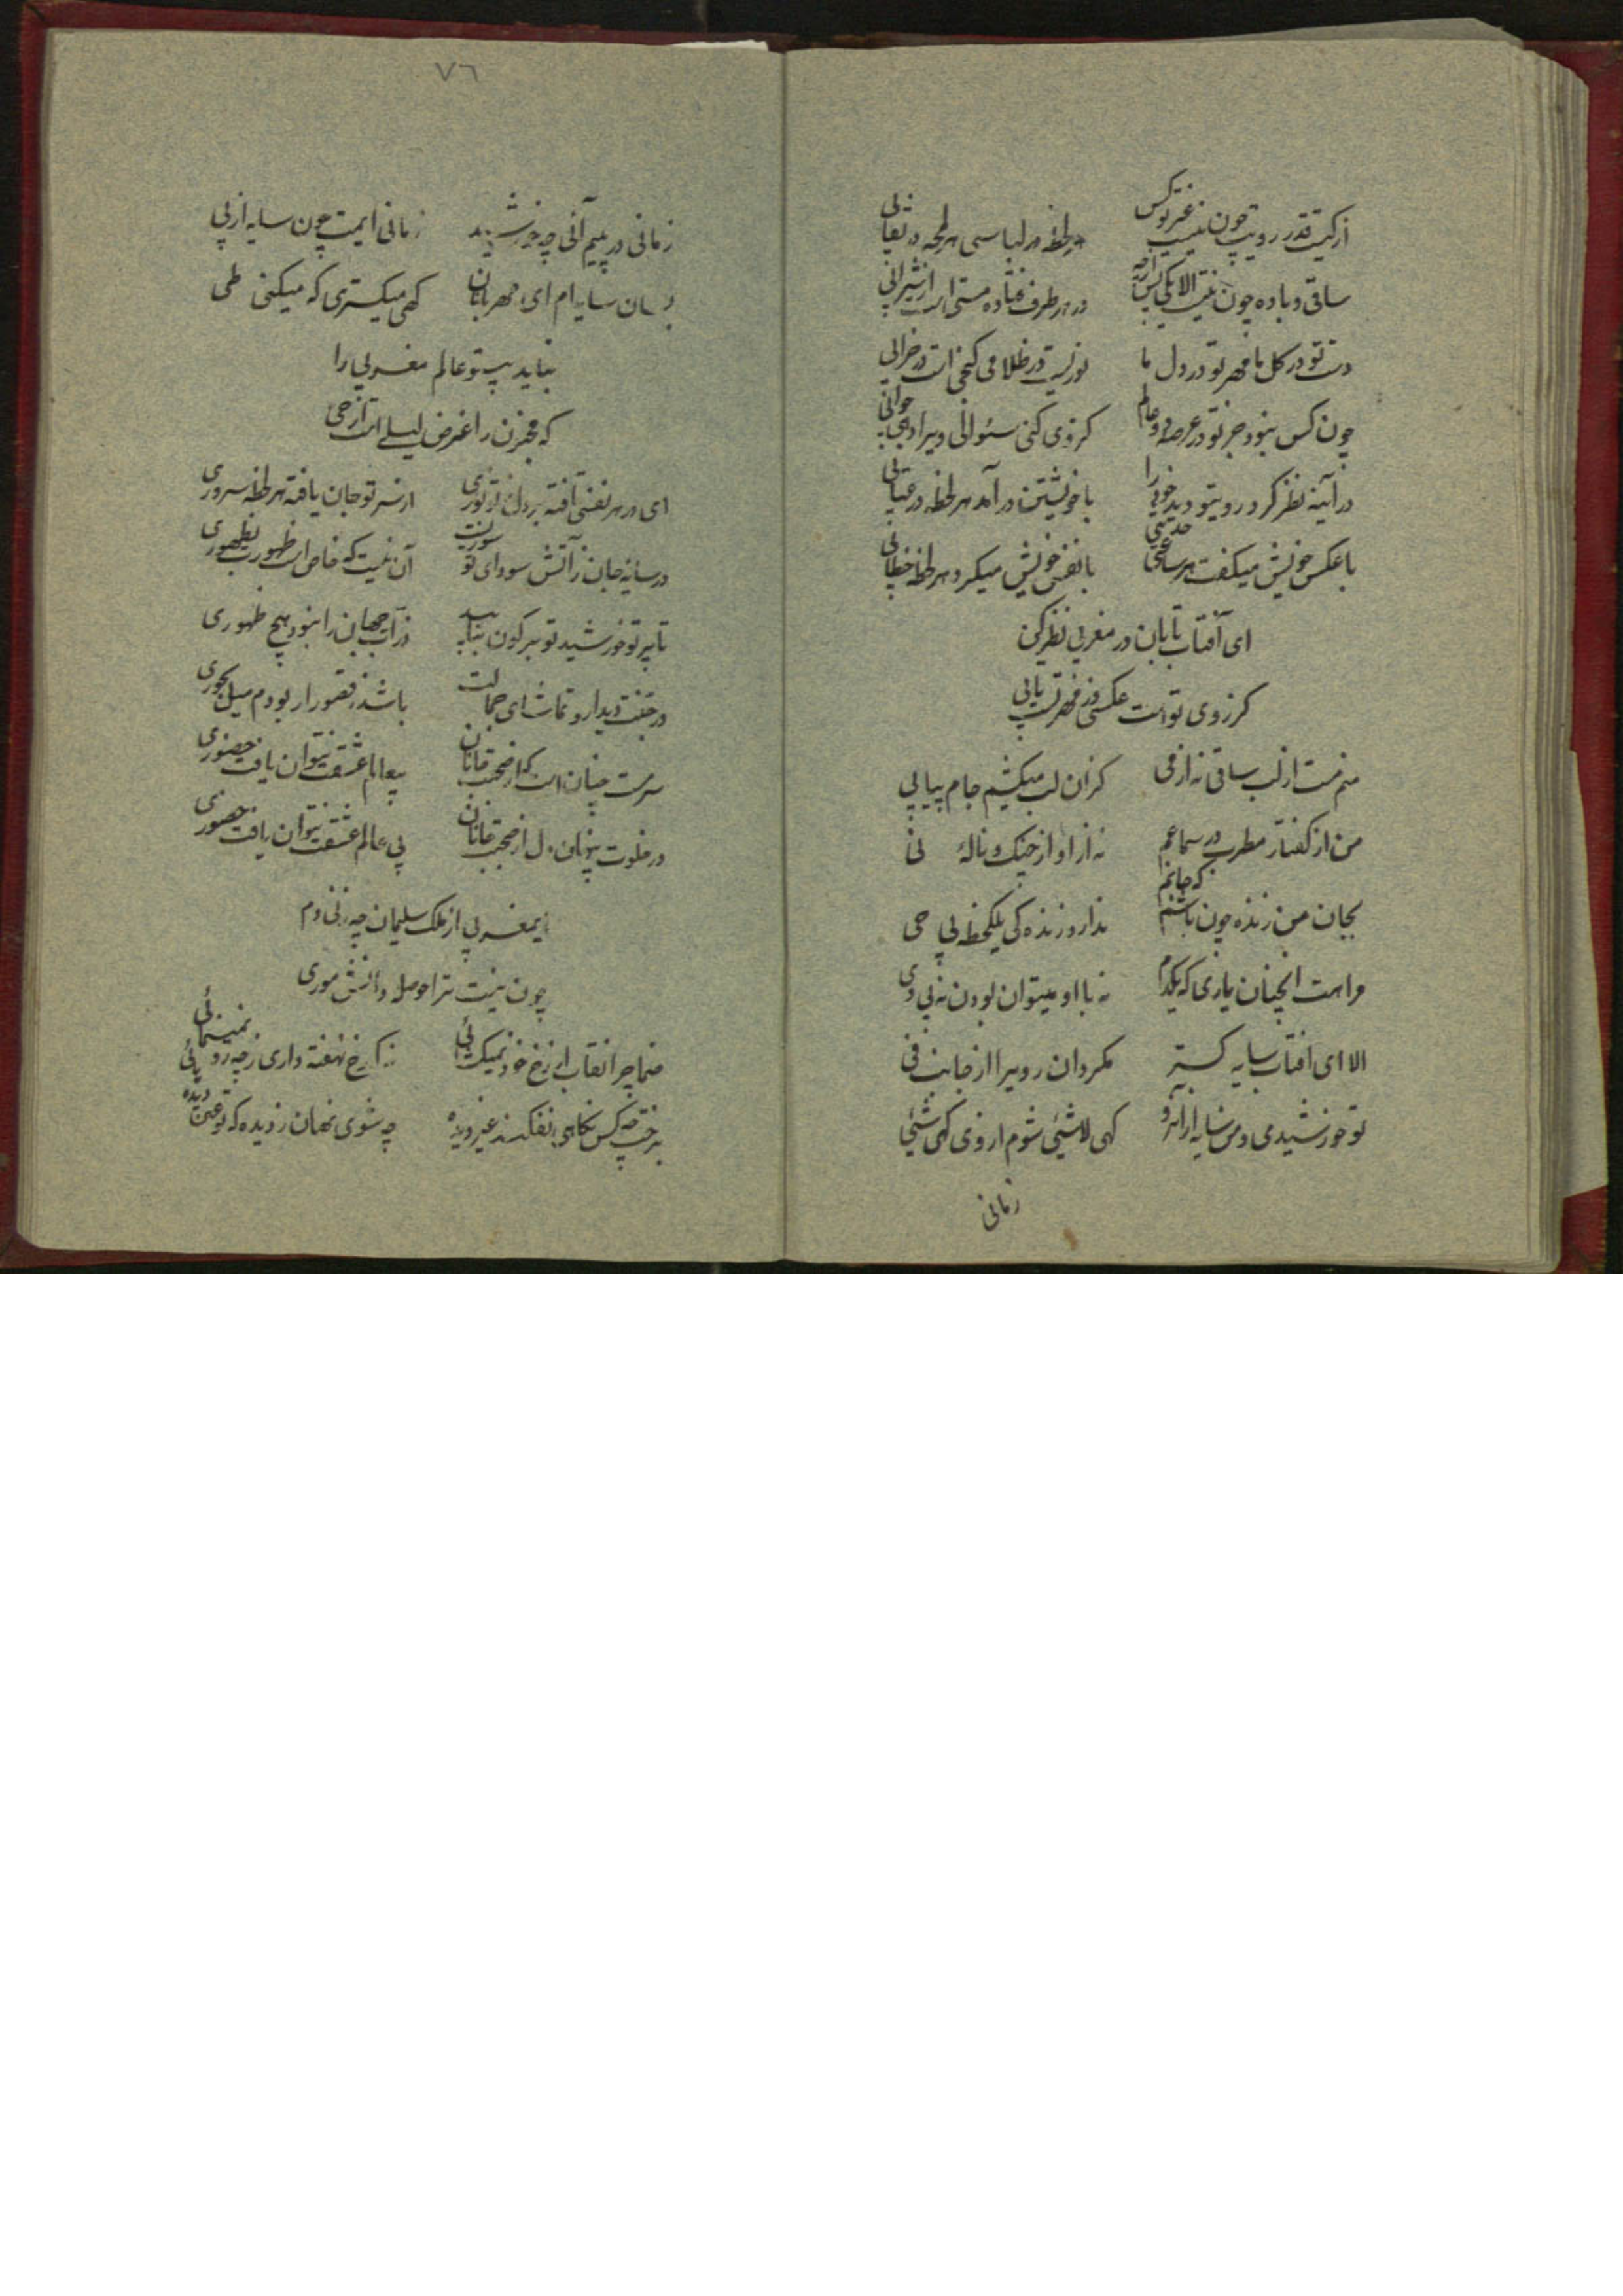 از کیست قدر رویت چون نیست غیر تو کس
هر لحظه در لباسی هر لمحه در نقابی
ساقی و باده چون نیست الا یکی
در هر طرف فتاده مستی است از شرابی
دست تو در کل ما مهر تو در دل ما
نوریست در ظلامی کنجی است در خرابی
چون کس نبود جز تو در عرصه دو عالم
کردی کنی سئوالی ویرا دهی جوابی
در آینه نظر کرد رویتو دید خود را
با خویشتن در آمد هر لحظه در عتابی
با عکس خویش میگفت هر ساعتی حدیثی
با نفس خویش میکرد هر لحظه خطابی
ای آفتاب تابان در مغربی نظر کن
کز روی تو است عکسی وز مهر تست تابی
منم مست از لب ساقی نه از می
کزان لب میکشیم جام پیاپی
من از کفتار مطرب در سماعم
نه از اواز چنک و نالهٔ نی
بجان من زنده چون باشم که جانم
ندارد زنده کی یکلحظه بی حی
مرا هست انچنان یاری که یکدم
نه با او میتوان بودن نه بی وی
الا ای افتاب سایه کستر
مکردان رویرا از جانب فی
تو خورشیدی و من سایه ازانرو
کهی لاشیئی شوم از وی کهی شیئی
زمانی
٧٦
زمانی در پیم آئی چه خورشید
زمانی ایمت چون سایه از پی
بسان سایه ام ای مهر تابان
کهی میکستری که میکنی طی
نباید بیتو عالم مغربی را
که مجنون را غرض لیلی است از حی
ای در هر نفسی تافته بر دل ز تو نوری
از سر تو جان یافته هر لحظه سروری
در سایه جان ز آتش سودای تو سوزیست
آن نیست که خاص است ظهورت بظهوری
تا پرتو خورشید تو بر کون نتابد
ذرات جهان را نبود هیچ ظهوری
در جنت دیدار و تماشای جمالت
باشد ز قصور ار بودم میل بحوری
سرمست چنان است که از صحبت
بیعالم عشقت نتوان یافت حضوری
در خلوت پنهان دل از صحبت
بی عالم عشقت نتوان یافت حضوری
ایمغربی از ملک سلیمان چه زنی دم
چون نیست ترا حوصله دانش موری
صنما چرا نقاب از رخ خود نمیکشائی
ز که رخ نهفته داری ز چه رو نمینمائی
برخت چه کس نکاهی نفکند غیر دیده
چه شوی نهان ز دیده که تو عین دیده هائی